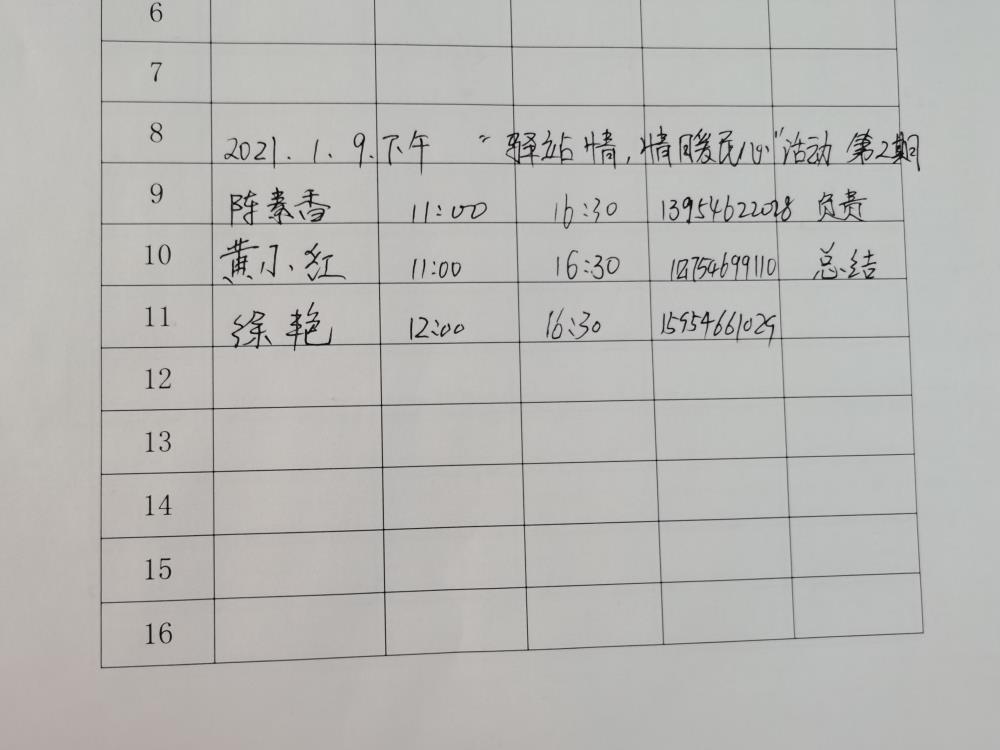 6
7
8 2021.1.9.下午 “驿站情,情暖民心”活动 第2期
9 陈素香 11:00 16:30 13954622028 负责
10 黄小红 11:00 16:30 18754699110 总结
11 徐艳 12:00 16:30 15954661029
12
13
14
15
16